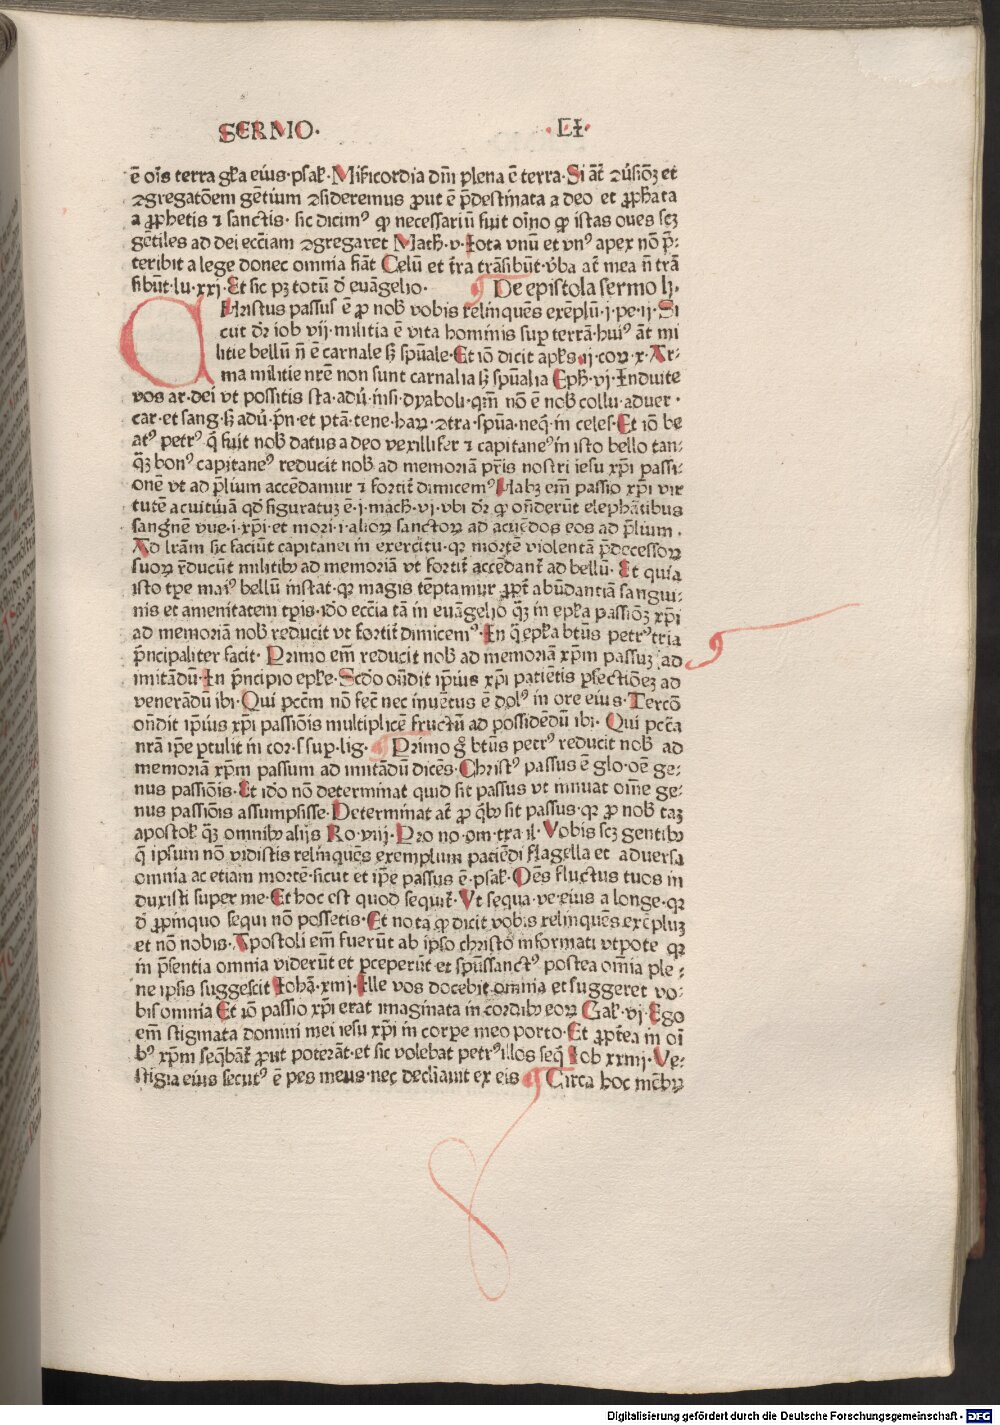 SERMO. .LI.
ē oīs terra gl̄ia eius·psal̄·Mīsericordia dn̄i plena ē terra·Si āt ꝯuersiōꝫ et
ꝯgregatōem gētium ꝯsideremus ꝓut ē p̄destinata a deo et ꝓphata
a ꝓphetis ⁊ sanctis· sic dicimꝰ ꝙ necessariū fuit oīno ꝙ istas oues scꝫ
gētiles ad dei ecc̄iam ꝯgregaret Math̄·v·Iota vnū et vnꝰ apex nō p̄-
teribit a lege donec omnia fiāt Celū et t̄ra trāsibūt·v̄ba at̄ mea n̄ trā
sibūt·lu·xxi·Et sic pꝫ totū d̄ euāgelio· De epistola sermo li·
CHristus passus ē ꝓ nob̄ vobis relinquēs exēplū·i·pe·ij·Si
cut dr̄ iob vij·militia ē vita hominis suꝑ terrā·huiꝰ āt mi
litie bellū n̄ ē carnale sꝫ spūale·Et iō dicit apl̄s ij·coꝝ·x·Ar-
ma militie nr̄e non sunt carnalia sꝫ spūalia Eph̄·vj·Induite
vos ar·dei vt possitis sta·adū·īnsi·dyaboli·qm̄ nō ē nob̄ collu·aduer·
car·et sang·sꝫ adū·p̄n·et ptā·tene·haꝝ·ꝯtra·spūa·neq̄·in celes·Et iō be
atꝰ petrꝰ q̄ fuit nob̄ datus a deo vexillifer ⁊ capitaneꝰ in isto bello tan-
q̄ꝫ bonꝰ capitaneꝰ reducit nob̄ ad memoriā pr̄is nostri iesu xp̄i passi-
onē vt ad p̄lium accēdamur ⁊ fortit̄ dimicemꝰ Habꝫ em̄ passio xp̄i vir
tutē acuitiuā qd̄ figuratuꝫ ē·j·mach̄·vj·vbi dr̄ ꝙ on̄derūt elephātibus
sangn̄em vue·i·xp̄i·et mori·i·alioꝝ sanctoꝝ ad acuēdos eos ad p̄lium·
Ad lr̄am sic faciūt capitanei in exercitu·qꝛ mortē violentā p̄decessoꝝ
suoꝝ r̄ducūt militibꝰ ad memoriā vt fortit̄ accedant̄ ad bellū· Et quia
isto tꝑe maiꝰ bellū instat·qꝛ magis tēptamur ꝓpt̄ abūdantiā sangui-
nis et amenitatem tꝑis·ido ecc̄ia tā in euāgelio q̄ꝫ in epl̄a passiōꝫ xp̄i
ad memoriā nob̄ reducit vt fortit̄ dimicemꝰ·In q̄ epl̄a btūs petrꝰ tria
p̄ncipaliter facit· Primo em̄ reducit nob̄ ad memoriā xp̄m passuꝫ ad
imitādū·In p̄ncipio epl̄e·Scdo on̄dit ip̄ius xp̄i patiētis ꝑfectiōeꝫ ad
venerādū ibi·Qui pccm̄ nō fec̄ nec inuētus ē dolꝰ in ore eius·Tercō
on̄dit ip̄ius xp̄i passiōis multiplicē fructū ad possidēdū ibi· Qui pccā
nrā ip̄e ꝑtulit in cor·s sup·lig· Primo g̊ btūs petrꝰ reducit nob̄ ad
memoriā xp̄m passum ad imitādū dicēs·Christꝰ passus ē glo·oē ge-
nus passiōis·Et ido nō determinat quid sit passus vt innuat oīne ge-
nus passiōis assumpsisse·Determinat at̄ ꝓ qbꝰ sit passus·qꝛ ꝓ nob̄ taꝫ
apostol̄ q̄ꝫ omnibꝰ alijs Ro·viij·Pro no·om·tra·il·Vobis scꝫ gentibꝰ
q̄ ipsum nō vidistis relinquēs exemplum patiēdi flagella et aduersa
omnia ac etiam mortē·sicut et ip̄e passus ē·psal̄·Oēs fluctus tuos in
duxisti super me·Et hoc est quod sequit̄·Vt sequa·ve·eius a longe·qꝛ
d̄ ꝓpinquo sequi nō possetis·Et nota ꝙ dicit vobis relinquēs exēpluꝫ
et nō nobis·Apostoli em̄ fuerūt ab ipso christo informati vtpote qꝛ
in p̄sentia omnia viderūt et ꝑceperūt·et spūssanctꝰ postea om̄ia ple-
ne ipsis suggescit Iohā·xiiij·Ille vos docebit omnia et suggeret vo-
bis omnia Et iō passio xp̄i erat imaginata in cordibꝰ eoꝝ Gal̄·vj·Ego
em̄ stigmata domini mei iesu xp̄i in corꝑe meo porto·Et ꝓpt̄ea in oī
bꝰ xp̄m seq̄bāt̄ ꝓut poterāt·et sic volebat petrꝰ illos seq̄ Iob xxiij·Ve-
stigia eius secutꝰ ē pes meus·nec decliauit ex eis Circa hoc mēbꝝ
Digitalisierung gefördert durch die Deutsche Forschungsgemeinschaft - DFG